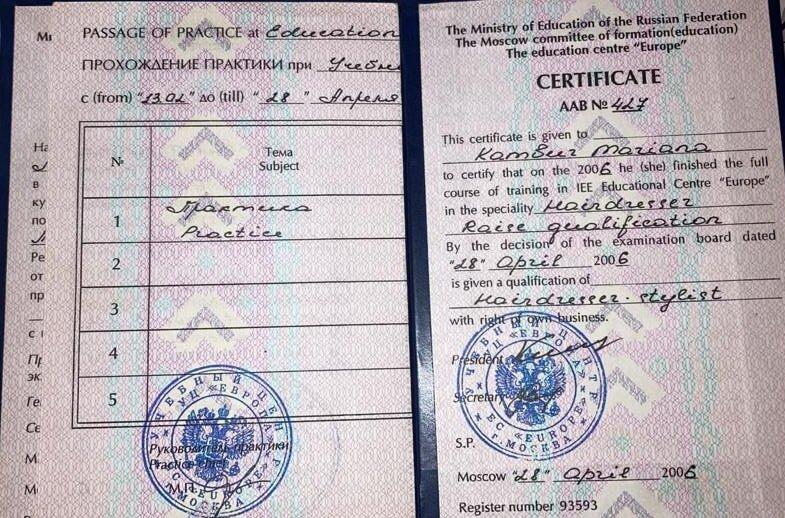 PASSAGE OF PRACTICE at Education
ПРОХОЖДЕНИЕ ПРАКТИКИ при Учебн
с (from) "13.02" до (till) "28" Апреля
№
Тема
Subject
1
Практика
Practice
2
3
4
5
Руководитель практики
Practice chief
М.П.
УЧЕБНЫЙ ЦЕН
УЦ «ЕВРОПА»
На
в
ку
по
Ре
от
пр
с
Пр
эк
Ге
Се
М
М
The Ministry of Education of the Russian Federation
The Moscow committee of formation(education)
The education centre "Europe"
CERTIFICATE
AAB № 427
This certificate is given to
Kambur Mariana
to certify that on the 2006 he (she) finished the full
course of training in IEE Educational Centre "Europe"
in the speciality Hairdresser
Raise qualification
By the decision of the examination board dated
"28" April 2006
is given a qualification of
Hairdresser-stylist
with right of own business.
President
Secretary
S.P.
УЧЕБНЫЙ ЦЕНТР
УЦ «ЕВРОПА»
ЕС «EUROPE»
г. МОСКВА
Moscow "28" April 2006
Register number 93593